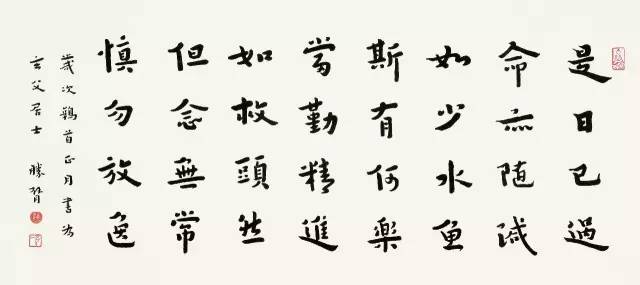 是日已過
命亦隨減
如少水魚
斯有何樂
當勤精進
如救頭然
但念無常
慎勿放逸
歲次鶉首正月書為
玄父居士 勝